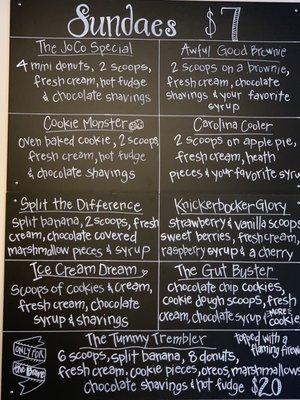 Sundaes $7
The JoCo Special
4 mini donuts, 2 scoops,
fresh cream, hot fudge
& chocolate shavings
Awful Good Brownie
2 scoops on a brownie,
fresh cream, chocolate
shavings & your favorite
syrup
Cookie Monster
oven baked cookie, 2 scoops
fresh cream, hot fudge
& chocolate shavings
Carolina Cooler
2 scoops on apple pie,
fresh cream, heath
pieces & your favorite syrup
Split the Difference
split banana, 2 scoops, fresh
cream, chocolate covered
marshmallow pieces & syrup
Knickerbocker Glory
strawberry & vanilla scoops
sweet berries, fresh cream,
raspberry syrup & a cherry
Ice Cream Dream
scoops of cookies & cream,
fresh cream, chocolate
syrup & shavings
The Gut Buster
chocolate chip cookies,
cookie dough scoops, fresh
cream, chocolate syrup & MORE
cookie
The Tummy Trembler
topped with a
flaming
ONLY FOR
the Brave
6 scoops, split banana, 8 donuts,
fresh cream, cookie pieces, oreos, marshmallows
chocolate shavings & hot fudge $20